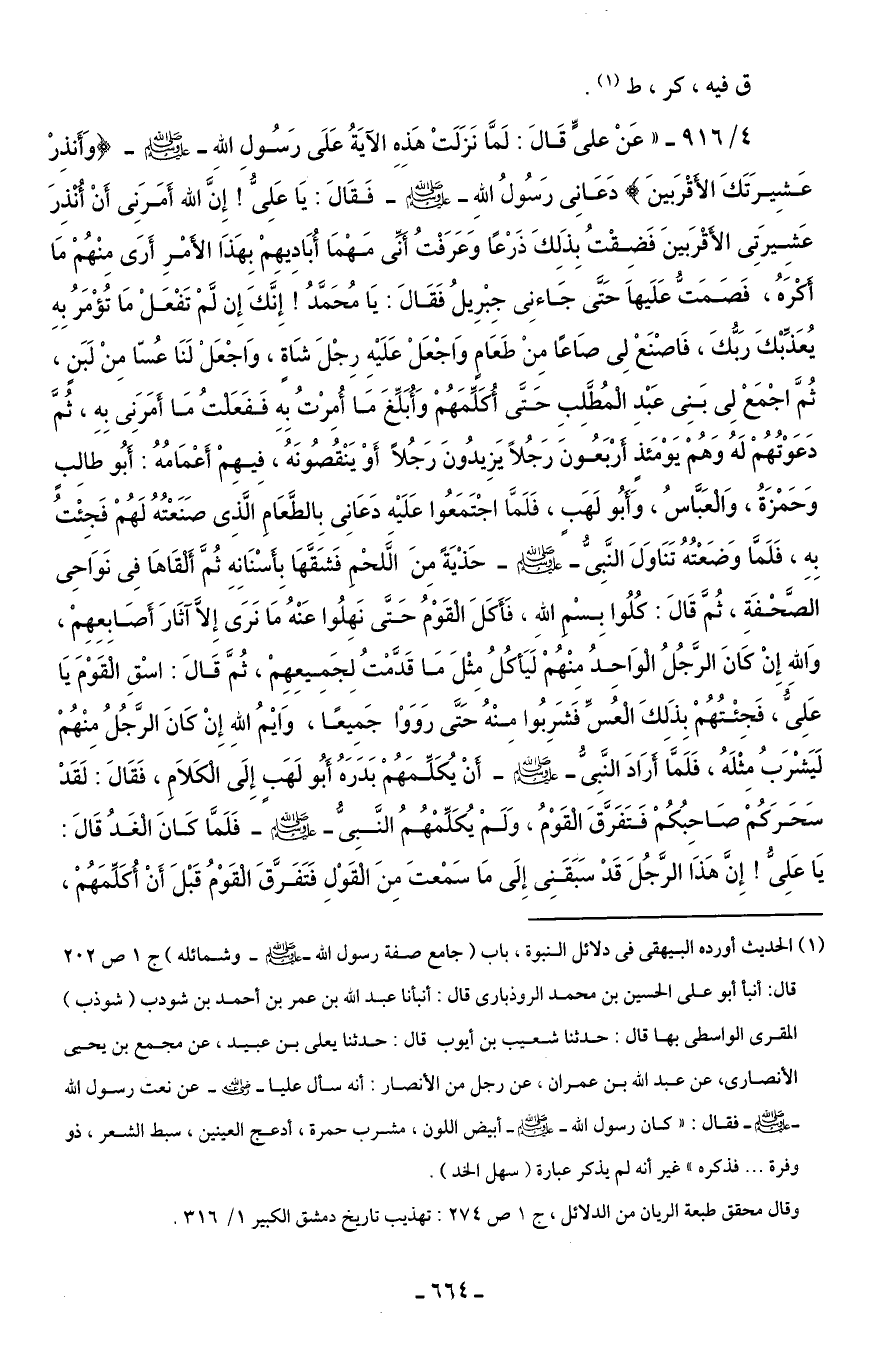 ق فيه ، كر ، ط (١) .
٤/ ٩١٦ ـ « عَنْ عَلىٍّ قَالَ : لَمَّا نَزَلَتْ هَذِهِ الآيَةُ عَلَى رَسُولِ اللهِ ـ ﷺ ـ ﴿وَأَنذِرْ
عَشِيرَتَكَ الأَقْرَبِينَ﴾ دَعَانِى رَسُولُ اللهِ ـ ﷺ ـ فَقَالَ : يَا عَلىُّ ! إِنَّ اللهَ أَمَرَنِى أَنْ أُنْذِرَ
عَشِيرَتِى الأَقْرَبِينَ فَضِقْتُ بِذَلِكَ ذَرْعًا وَعَرَفْتُ أَنِّى مَهْمَا أُبَادِيهِمْ بِهَذَا الأَمْرِ أَرَى مِنْهُمْ مَا
أَكْرَهُ ، فَصَمَتُّ عَلَيهَا حَتَّى جَاءَنِى جِبْرِيلُ فَقَالَ : يَا مُحَمَّدُ ! إِنَّكَ إِن لَمْ تَفْعَلْ مَا تُؤْمَرُ بِهِ
يُعَذِّبْكَ رَبُّكَ ، فَاصْنَعْ لِى صَاعًا مِنْ طَعَامٍ وَاجْعَلْ عَلَيْهِ رِجْلَ شَاةٍ ، وَاجْعَلْ لَنَا عُسّا مِنْ لَبَنٍ ،
ثُمَّ اجْمَعْ لِى بَنِى عَبْدِ الْمُطَّلِبِ حَتَّى أُكَلِّمَهُمْ وَأُبَلِّغَ مَا أُمِرْتُ بِهِ فَفَعَلْتُ مَا أَمَرَنِى بِهِ ، ثُمَّ
دَعَوْتُهُمْ لَهُ وَهُمْ يَوْمَئِذٍ أَرْبَعُونَ رَجُلاً يَزِيدُونَ رَجُلاً أَوْ يَنْقُصُونَهُ ، فِيهِمْ أَعْمَامُهُ : أَبُو طَالِبٍ
وَحَمْزَةُ ، وَالْعَبَّاسُ ، وَأَبُو لَهَبٍ ، فَلَمَّا اجْتَمَعُوا عَلَيْهِ دَعَانِى بِالطَّعَامِ الَّذِى صَنَعْتُهُ لَهُمْ فَجِئْتُ
بِهِ ، فَلَمَّا وَضَعْتُهُ تَنَاوَلَ النَّبِىُّ ـ ﷺ ـ حَذْيَةً مِنَ اللَّحْمِ فَشَقَّهَا بِأَسْنَانِهِ ثُمَّ أَلْقَاهَا فِى نَوَاحِى
الصَّحْفَةِ ، ثُمَّ قَالَ : كُلُوا بِسْمِ اللهِ ، فَأَكَلَ الْقَوْمُ حَتَّى نَهِلُوا عَنْهُ مَا نَرَى إِلاَّ آثَارَ أَصَابِعِهِمْ ،
وَاللهِ إِنْ كَانَ الرَّجُلُ الْوَاحِدُ مِنْهُمْ لَيَأكُلُ مِثْلَ مَا قَدَّمْتُ لِجَمِيعِهِمْ ، ثُمَّ قَالَ : اسْقِ الْقَوْمَ يَا
عَلىُّ ، فَجِئْتُهُمْ بِذَلِكَ الْعُسِّ فَشَرِبُوا مِنْهُ حَتَّى رَوَوْا جَمِيعًا ، وَايْمُ اللهِ إِنْ كَانَ الرَّجُلُ مِنْهُمْ
لَيَشْرَبُ مِثْلَهُ ، فَلَمَّا أَرَادَ النَّبِىُّ ـ ﷺ ـ أَنْ يُكَلِّمَهُمْ بَدَرَهُ أَبُو لَهَبٍ إِلَى الْكَلاَمِ ، فَقَالَ : لَقَدْ
سَحَرَكُمْ صَاحِبُكُمْ فَتَفَرَّقَ الْقَوْمُ ، وَلَمْ يُكَلِّمْهُمُ النَّبِىُّ ـ ﷺ ـ فَلَمَّا كَانَ الْغَدُ قَالَ :
يَا عَلىُّ ! إِنَّ هَذَا الرَّجُلَ قَدْ سَبَقَنِى إِلَى مَا سَمْعت مِنَ الْقَوْلِ فَتَفَرَّقَ الْقَوْمُ قَبْلَ أَنْ أُكَلِّمَهُمْ ،
(١) الحديث أورده البيهقى فى دلائل النبوة ، باب ( جامع صفة رسول الله ـ ﷺ ـ وشمائله ) ج ١ ص ٢٠٢
قال: أنبأ أبو على الحسين بن محمد الروذبارى قال : أنبأنا عبد الله بن عمر بن أحمد بن شودب ( شوذب )
المقرى الواسطى بها قال : حدثنا شعيب بن أيوب قال : حدثنا يعلى بن عبيد ، عن مجمع بن يحيى
الأنصارى، عن عبد الله بن عمران ، عن رجل من الأنصار : أنه سأل عليا ـ رضي الله عنه ـ عن نعت رسول الله
ـ ﷺ ـ فقال : « كان رسول الله ـ ﷺ ـ أبيض اللون ، مشرب حمرة ، أدعج العينين ، سبط الشعر ، ذو
وفرة ... فذكره » غير أنه لم يذكر عبارة ( سهل الخد ) .
وقال محقق طبعة الريان من الدلائل ، ج ١ ص ٢٧٤ : تهذيب تاريخ دمشق الكبير ١/ ٣١٦ .
ـ ٦٦٤ ـ